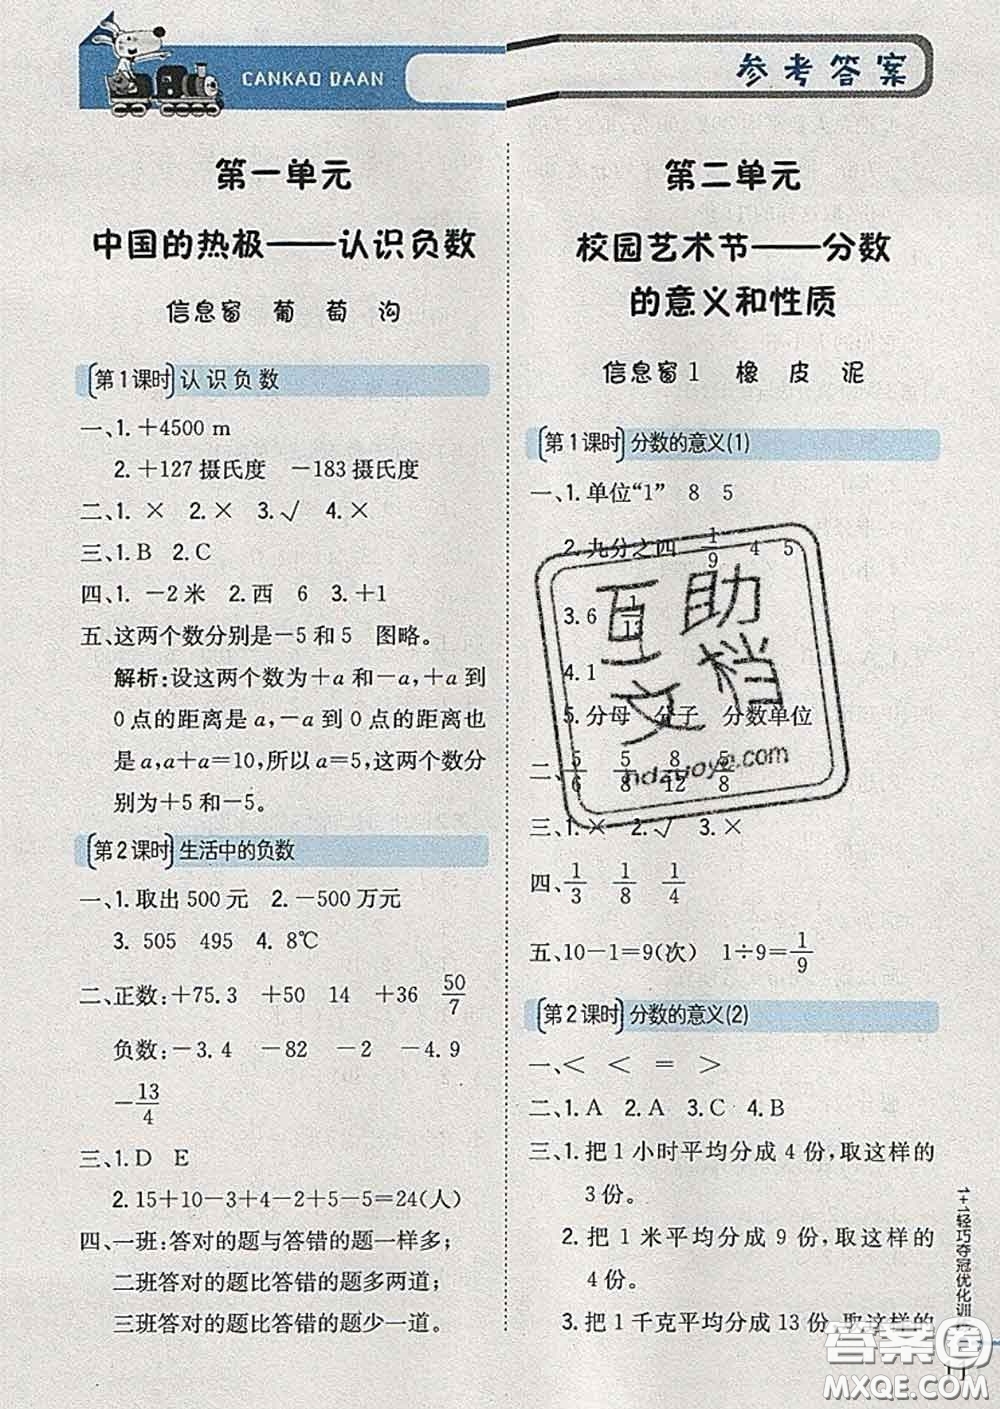 CANKAO DAAN
参考答案
第一单元
中国的热极——认识负数
信息窗 葡 萄 沟
第1课时 认识负数
一、1. +4500 m
2. +127摄氏度 -183摄氏度
二、1. × 2. × 3. √ 4. ×
三、1. B 2. C
四、1. -2米 2. 西 6 3. +1
五、这两个数分别是-5和5 图略。
解析:设这两个数为+a和-a,+a到
0点的距离是a,-a到0点的距离也
是a,a+a=10,所以a=5,这两个数分
别为+5和-5。
第2课时 生活中的负数
一、1. 取出500元 2. -500万元
3. 505 495 4. 8℃
二、正数:+75.3 +50 14 +36 50/7
负数:-3.4 -82 -2 -4.9
-13/4
三、1. D E
2. 15+10-3+4-2+5-5=24(人)
四、一班:答对的题与答错的题一样多;
二班答对的题比答错的题多两道;
三班答对的题比答错的题少一道。
第二单元
校园艺术节——分数
的意义和性质
信息窗1 橡 皮 泥
第1课时 分数的意义(1)
一、1. 单位“1” 8 5
2. 九分之四 1/9 4 5
3. 6 1/13
4. 1
5. 分母 分子 分数单位
二、5/6 5/8 8/12 5/8
三、1. × 2. √ 3. ×
四、1/3 1/8 1/4
五、10-1=9(次) 1÷9=1/9
第2课时 分数的意义(2)
一、< < = >
二、1. A 2. A 3. C 4. B
三、1. 把1小时平均分成4份,取这样的
3份。
2. 把1米平均分成9份,取这样的
4份。
3. 把1千克平均分成13份,取这样的
互助
文档
hdzuoye.com
1+1轻巧夺冠优化训
答案圈
MXQE.COM